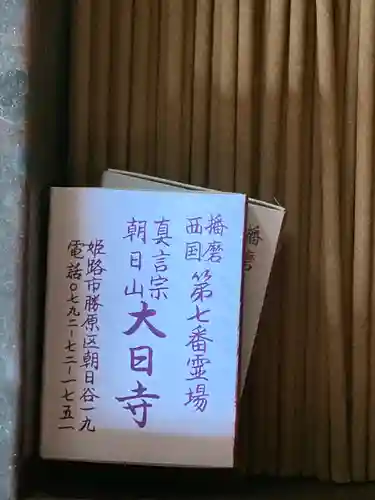 播磨
西国
第七番霊場
真言宗
朝日山
大日寺
姫路市勝原区朝日谷一九
電話〇七九二−七二−一七五一
播磨